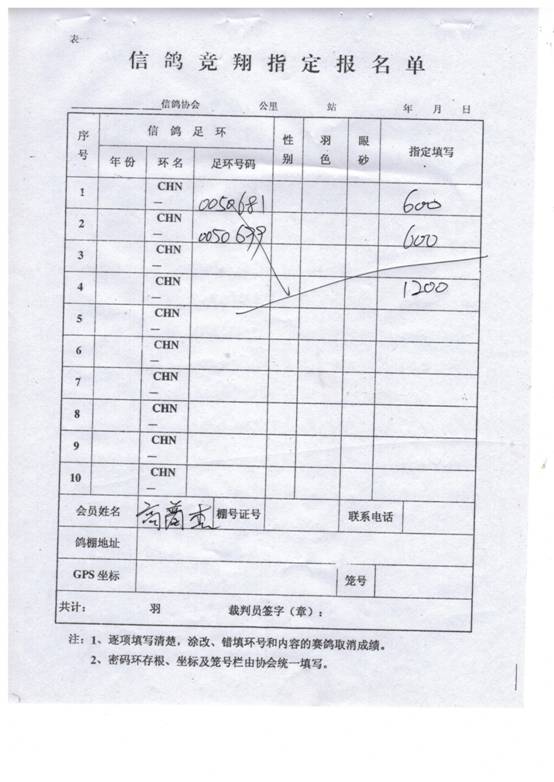 表
信鸽竞翔指定报名单
信鸽协会 公里 站 年 月 日
序号 信鸽足环 性别 羽色 眼砂 指定填写
年份 环名 足环号码
1 CHN— 0050681 600
2 CHN— 600
3 CHN—
4 CHN— 1200
5 CHN—
6 CHN—
7 CHN—
8 CHN—
9 CHN—
10 CHN—
会员姓名 棚号证号 联系电话
鸽棚地址
GPS 坐标 笼号
共计： 羽 裁判员签字（章）：
注：1、逐项填写清楚，涂改、错填环号和内容的赛鸽取消成绩。
2、密码环存根、坐标及笼号栏由协会统一填写。